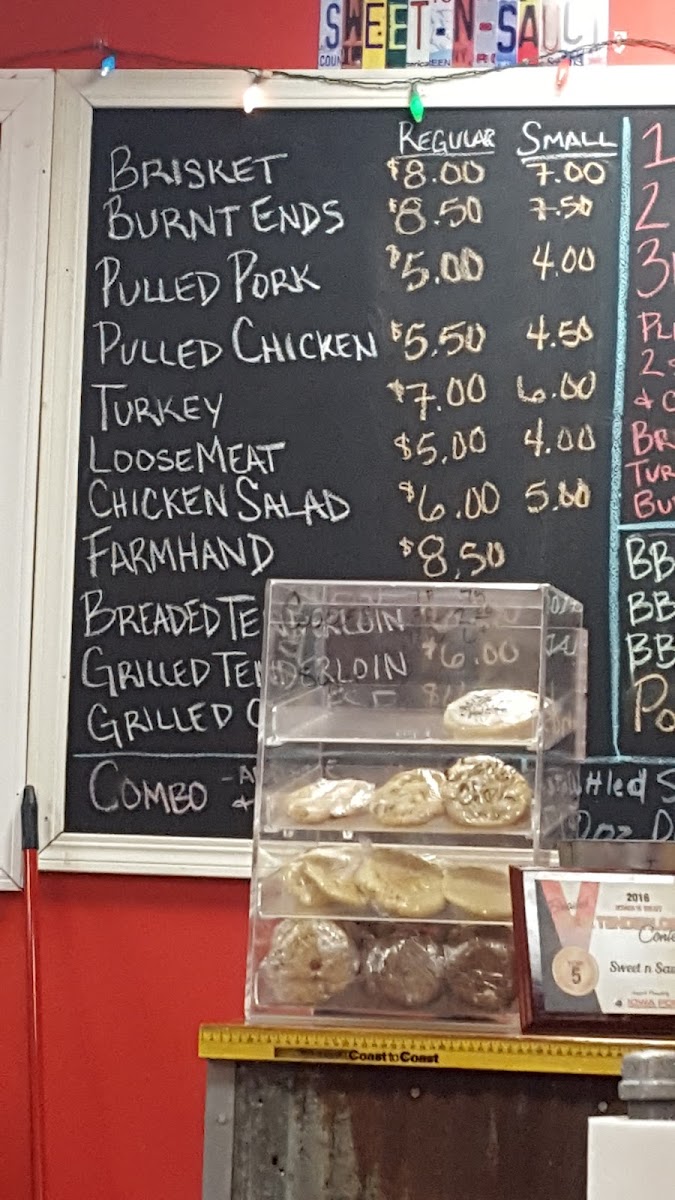 SWEET-N-SAUCY
REGULAR SMALL
BRISKET $8.00 7.00
BURNT ENDS $8.50 7.50
PULLED PORK $5.00 4.00
PULLED CHICKEN $5.50 4.50
TURKEY $7.00 6.00
LOOSEMEAT $5.00 4.00
CHICKEN SALAD $6.00 5.00
FARMHAND $8.50
BREADED TENDERLOIN
GRILLED TENDERLOIN $6.00
GRILLED
COMBO
1
2
3
PL
2
& C
BR
TUR
BU
BB
BB
BB
PO
2016
TENDERLO
Conte
5
Sweet n Sau
IOWA PO
Coast to Coast